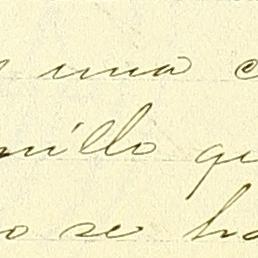 una c
nillo qu
o se ha